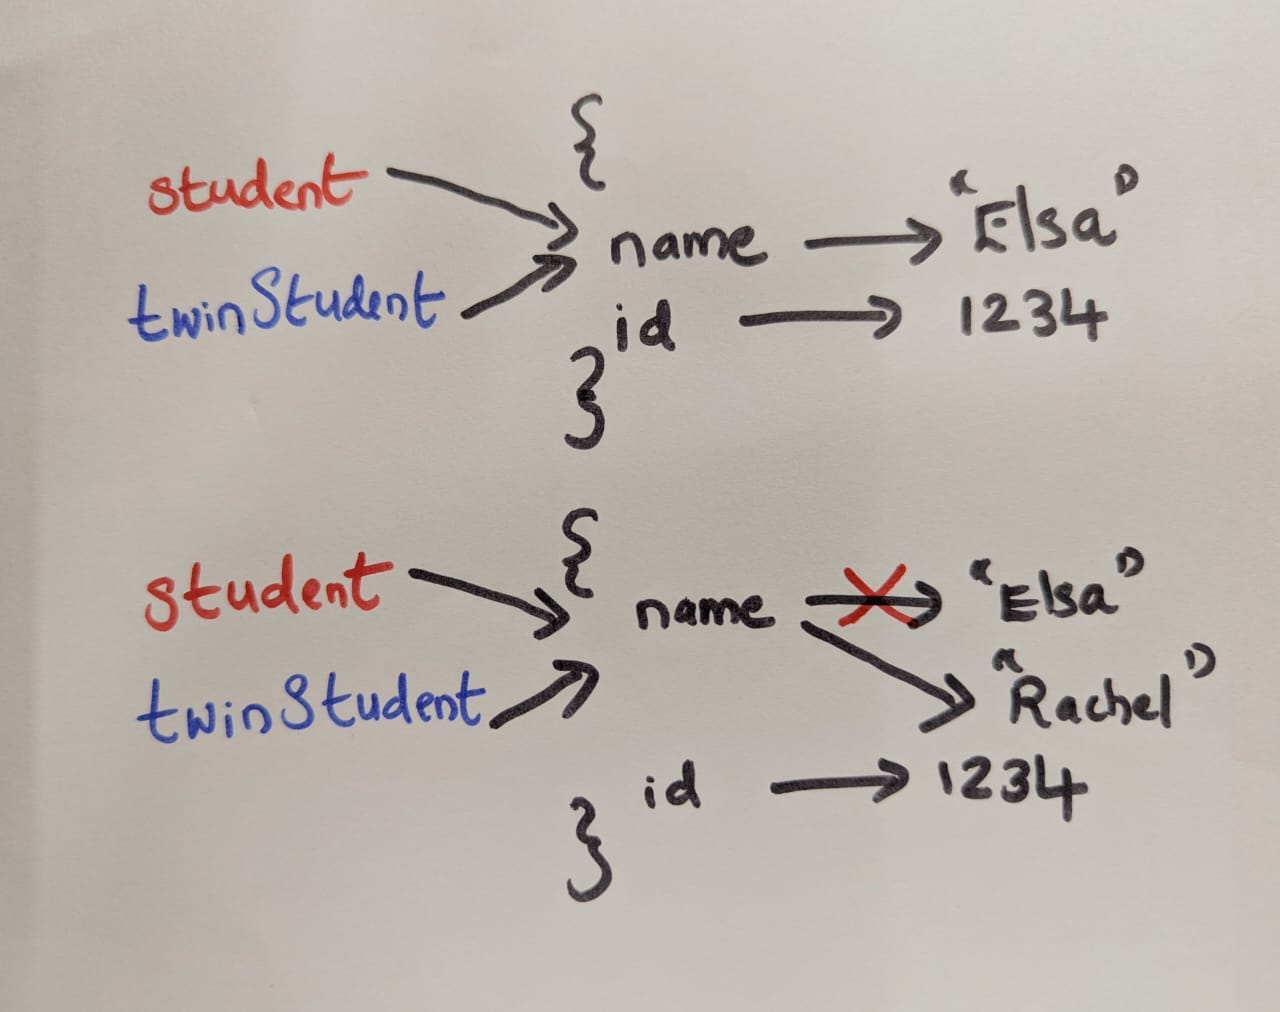 {
student
name → "Elsa"
twinStudent
id → 1234
}
{
student
name → "Elsa"
twinStudent
"Rachel"
id → 1234
}